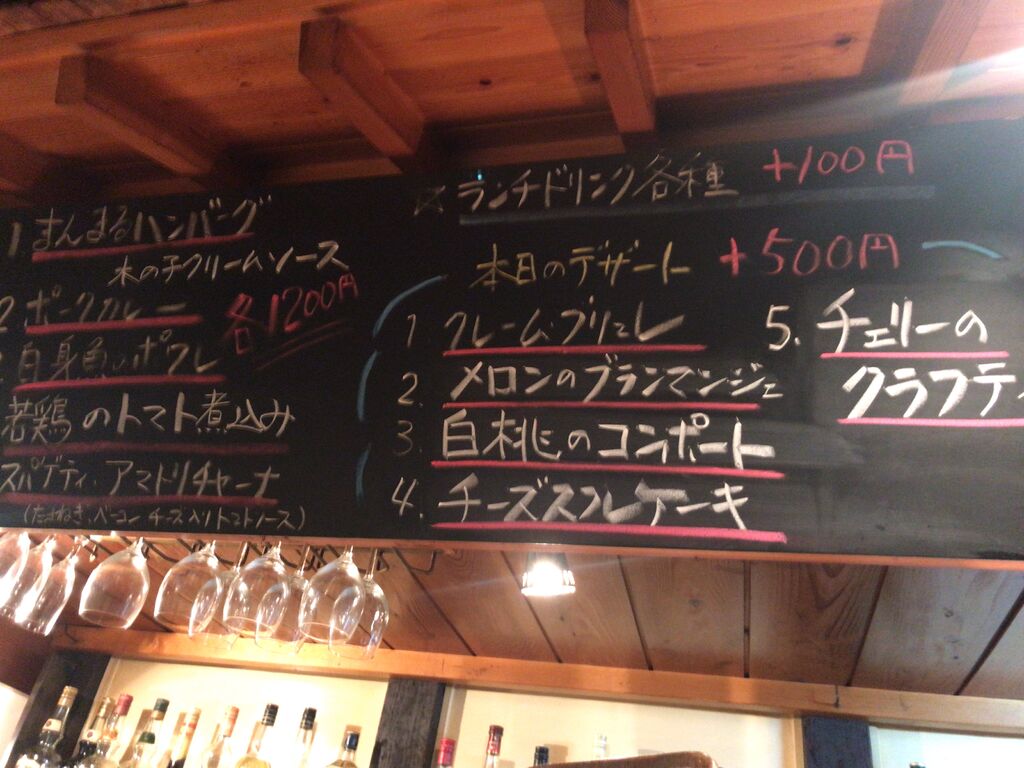 1. まんまるハンバーグ
木の子クリームソース
2. ポークカレー
各1200円
白身魚のポワレ
若鶏のトマト煮込み
スパゲティ・アマトリチャーナ
(たまねぎ、ベーコン チーズ入りトマトソース)
ランチドリンク各種 +100円
本日のデザート +500円
1. クレームブリュレ
2. メロンのブランマンジェ
3. 白桃のコンポート
4. チーズスフレケーキ
5. チェリーの
クラフティ